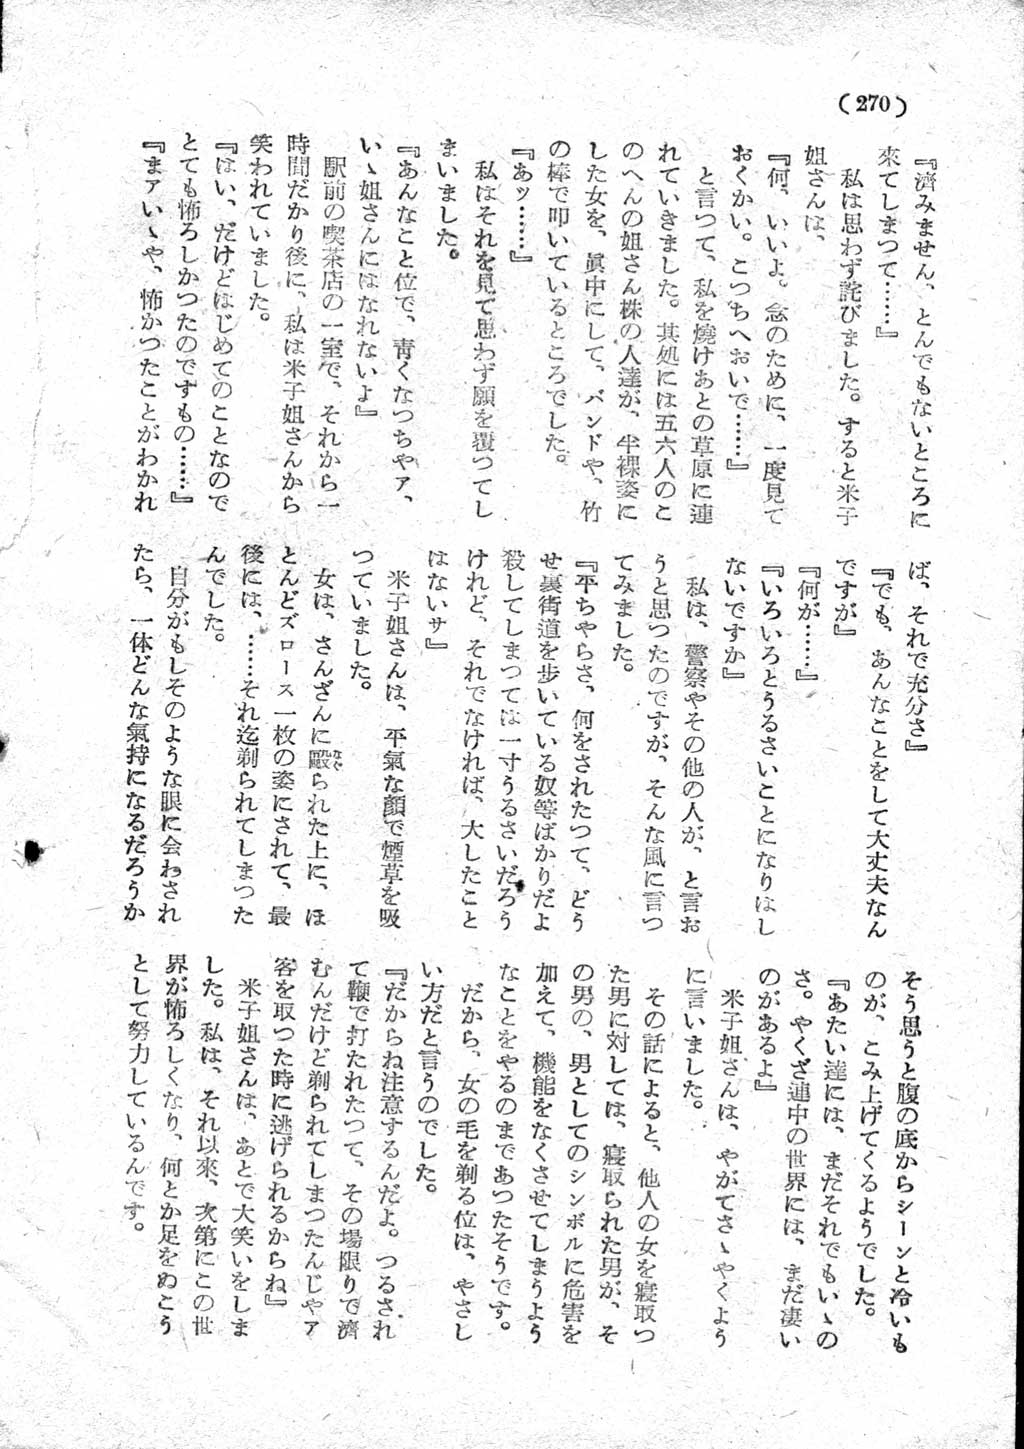 (270)
『濟みません、とんでもないところに
來てしまつて……』
私は思わず詫びました。すると米子
姐さんは、
『何、いいよ。念のために、一度見て
おくかい。こつちへおいで……』
と言つて、私を燒けあとの草原に連
れていきました。其処には五六人のこ
のへんの姐さん株の人達が、半裸姿に
した女を、眞中にして、バンドや、竹
の棒で叩いているところでした。
『あッ……』
私はそれを見て思わず顔を覆つてし
まいました。
『あんなこと位で、靑くなつちやァ、
いゝ姐さんにはなれないよ』
駅前の喫茶店の一室で、それから一
時間だかり後に、私は米子姐さんから
笑われていました。
『はい、だけどはじめてのことなので
とても怖ろしかつたのですもの……』
『まァいゝや、怖かつたことがわかれ
ば、それで充分さ』
『でも、あんなことをして大丈夫なん
ですが』
『何が……』
『いろいろとうるさいことになりはし
ないですか』
私は、警察やその他の人が、と言お
うと思つたのですが、そんな風に言つ
てみました。
『平ちやらさ、何をされたつて、どう
せ裏街道を歩いている奴等ばかりだよ
殺してしまつては一寸うるさいだろう
けれど、それでなければ、大したこと
はないサ』
米子姐さんは、平氣な顏で煙草を吸
つていました。
女は、さんざんに毆られた上に、ほ
とんどズロース一枚の姿にされて、最
後には、……それ迄剃られてしまつた
んでした。
自分がもしそのような眼に会わされ
たら、一体どんな氣持になるだろうか
そう思うと腹の底からシーンと冷いも
のが、こみ上げてくるようでした。
『あたい達には、まだそれでもいゝの
さ。やくざ連中の世界には、まだ凄い
のがあるよ』
米子姐さんは、やがてさゝやくよう
に言いました。
その話によると、他人の女を寢取つ
た男に対しては、寢取られた男が、そ
の男の、男としてのシンボルに危害を
加えて、機能をなくさせてしまうよう
なことをやるのまであつたそうです。
だから、女の毛を剃る位は、やさし
い方だと言うのでした。
『だからね注意するんだよ。つるされ
て鞭で打たれたつて、その場限りで濟
むんだけど剃られてしまつたんじやァ
客を取つた時に逃げられるからね』
米子姐さんは、あとで大笑いをしま
した。私は、それ以來、次第にこの世
界が怖ろしくなり、何とか足をぬこう
として努力しているんです。